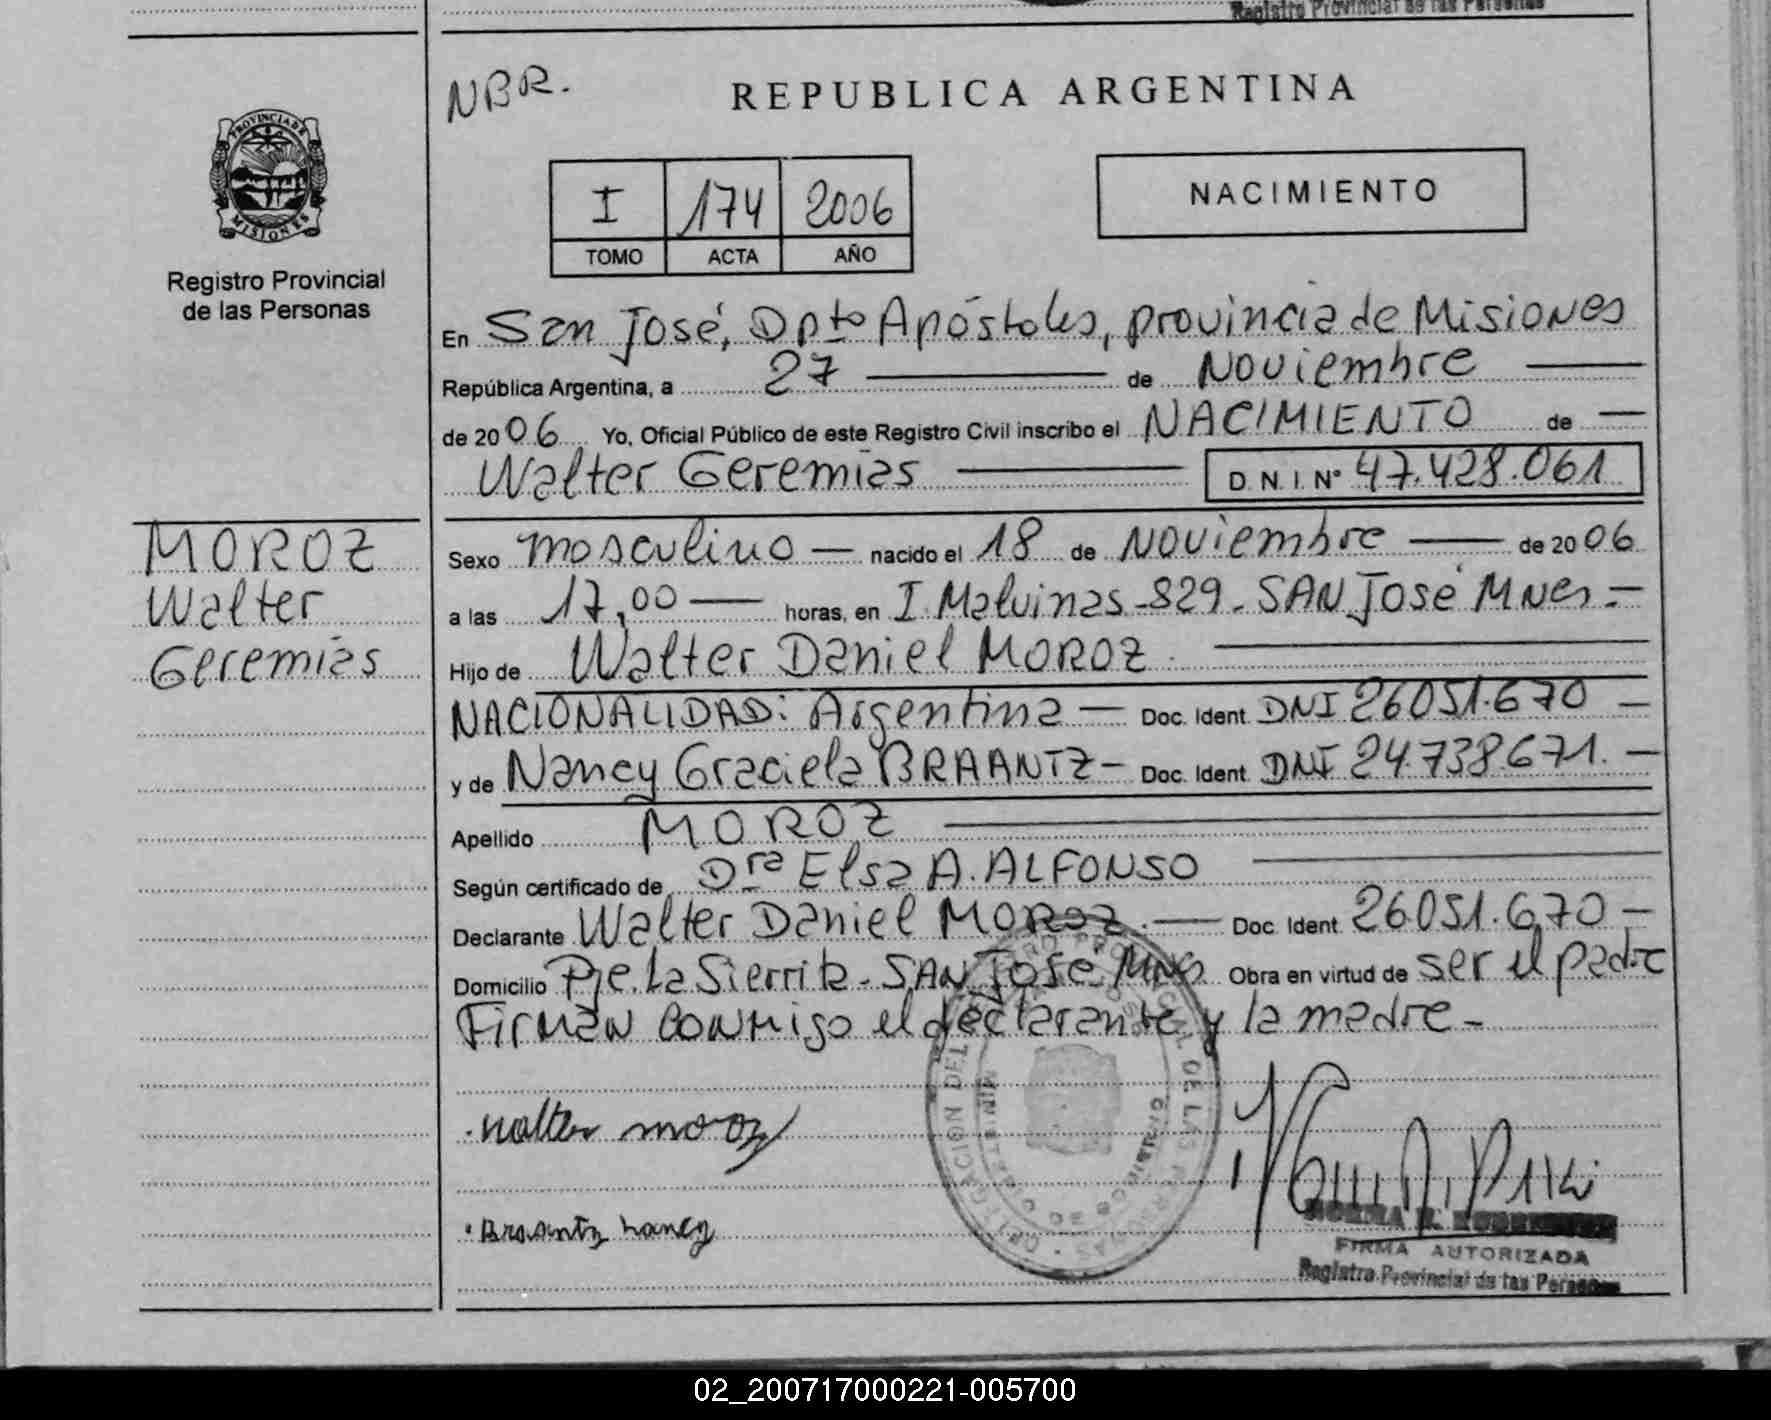 Registro Provincial de las Personas
NBR.
REPUBLICA ARGENTINA
PROVINCIA DE
MISIONES
Registro Provincial
de las Personas
I 174 2006
TOMO ACTA AÑO
NACIMIENTO
En San José, Dpto Apóstoles, provincia de Misiones
República Argentina, a 27 de Noviembre
de 2006 Yo, Oficial Público de este Registro Civil inscribo el NACIMIENTO de
Walter Geremias D.N.I. Nº 47.428.061
MOROZ
Walter
Geremias
Sexo masculino nacido el 18 de Noviembre de 2006
a las 17,00 horas, en I. Malvinas-829-SAN José Mnes.-
Hijo de Walter Daniel MOROZ
NACIONALIDAD: Argentina Doc. Ident. DNI 26051.670
y de Nancy Graciela BRAANTZ- Doc. Ident. DNI 24.738671.
Apellido MOROZ
Según certificado de Dra Elsa A. ALFONSO
Declarante Walter Daniel MOROZ. Doc. Ident. 26051.670
Domicilio Pje. La Sierrita - SAN José Mnes Obra en virtud de ser el padre
Firman conmigo el declarante y la madre-
Walter moroz
Braantz nancy
NORMA
FIRMA AUTORIZADA
Registro Provincial de las Personas
02_200717000221-005700